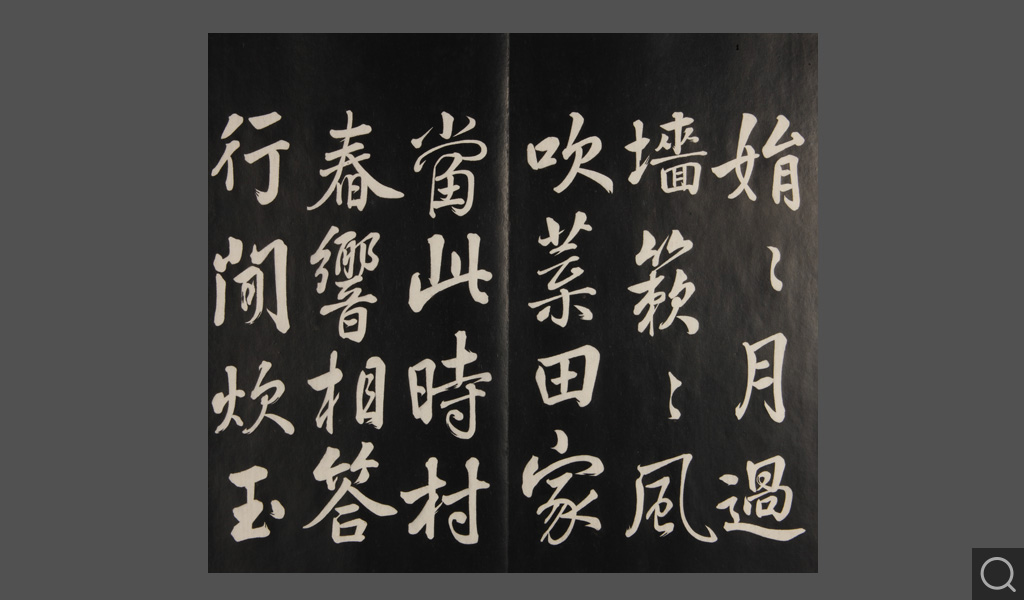 娟〻月過
墻簌〻風
吹葉田家
當此時村
舂響相答
行聞炊玉